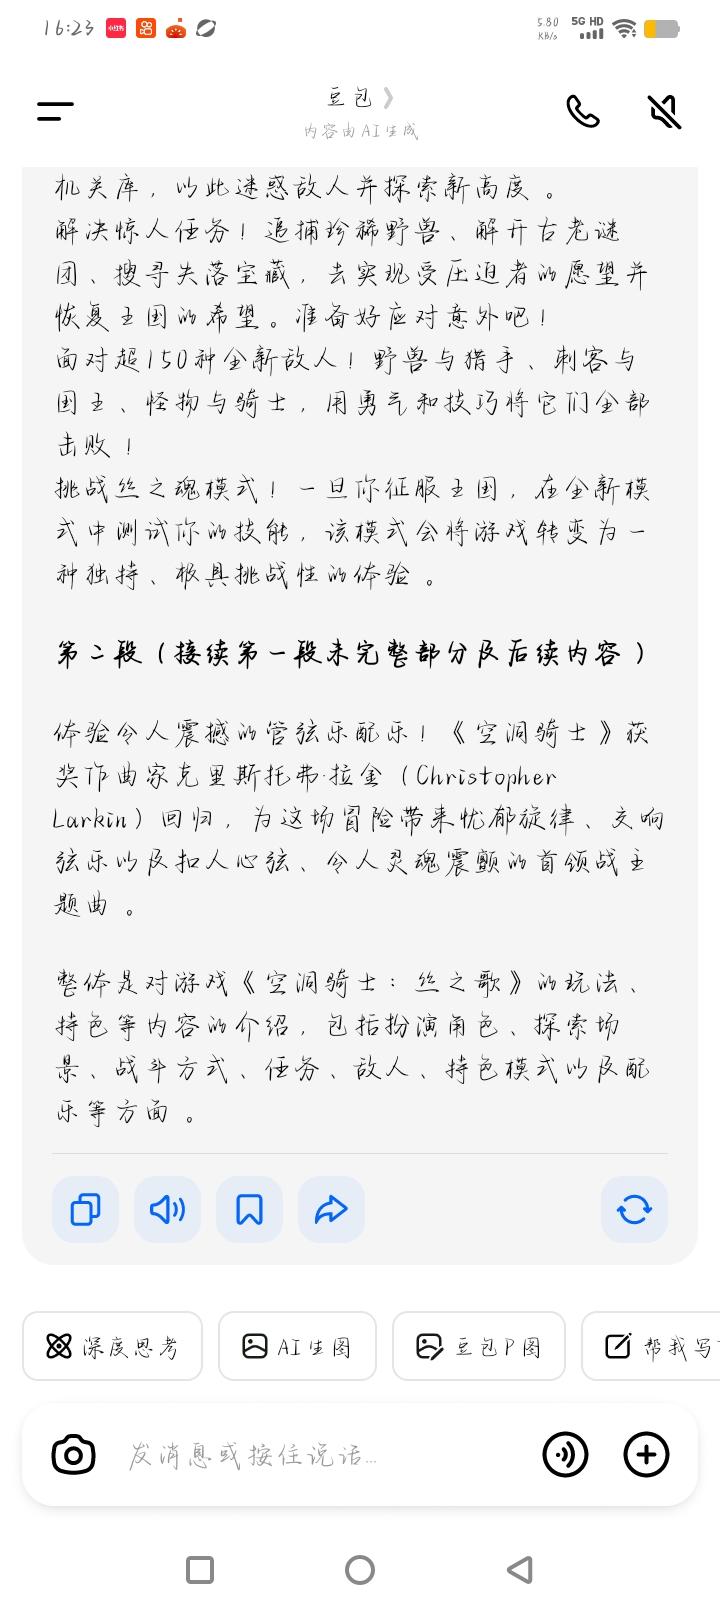 16:23
小红书
5.80 KB/s
5G HD
豆包
内容由AI生成
机关库，以此迷惑敌人并探索新高度。
解决惊人任务！追捕珍稀野兽、解开古老谜
团、搜寻失落宝藏，去实现受压迫者的愿望并
恢复王国的希望。准备好应对意外吧！
面对超150种全新敌人！野兽与猎手、刺客与
国王、怪物与骑士，用勇气和技巧将它们全部
击败！
挑战丝之魂模式！一旦你征服王国，在全新模
式中测试你的技能，该模式会将游戏转变为一
种独特、极具挑战性的体验。
第二段（接续第一段未完整部分及后续内容）
体验令人震撼的管弦乐配乐！《空洞骑士》获
奖作曲家克里斯托弗·拉金（Christopher
Larkin）回归，为这场冒险带来忧郁旋律、交响
弦乐以及扣人心弦、令人灵魂震颤的首领战主
题曲。
整体是对游戏《空洞骑士：丝之歌》的玩法、
特色等内容的介绍，包括扮演角色、探索场
景、战斗方式、任务、敌人、特色模式以及配
乐等方面。
深度思考
AI生图
豆包P图
帮我写
发消息或按住说话...